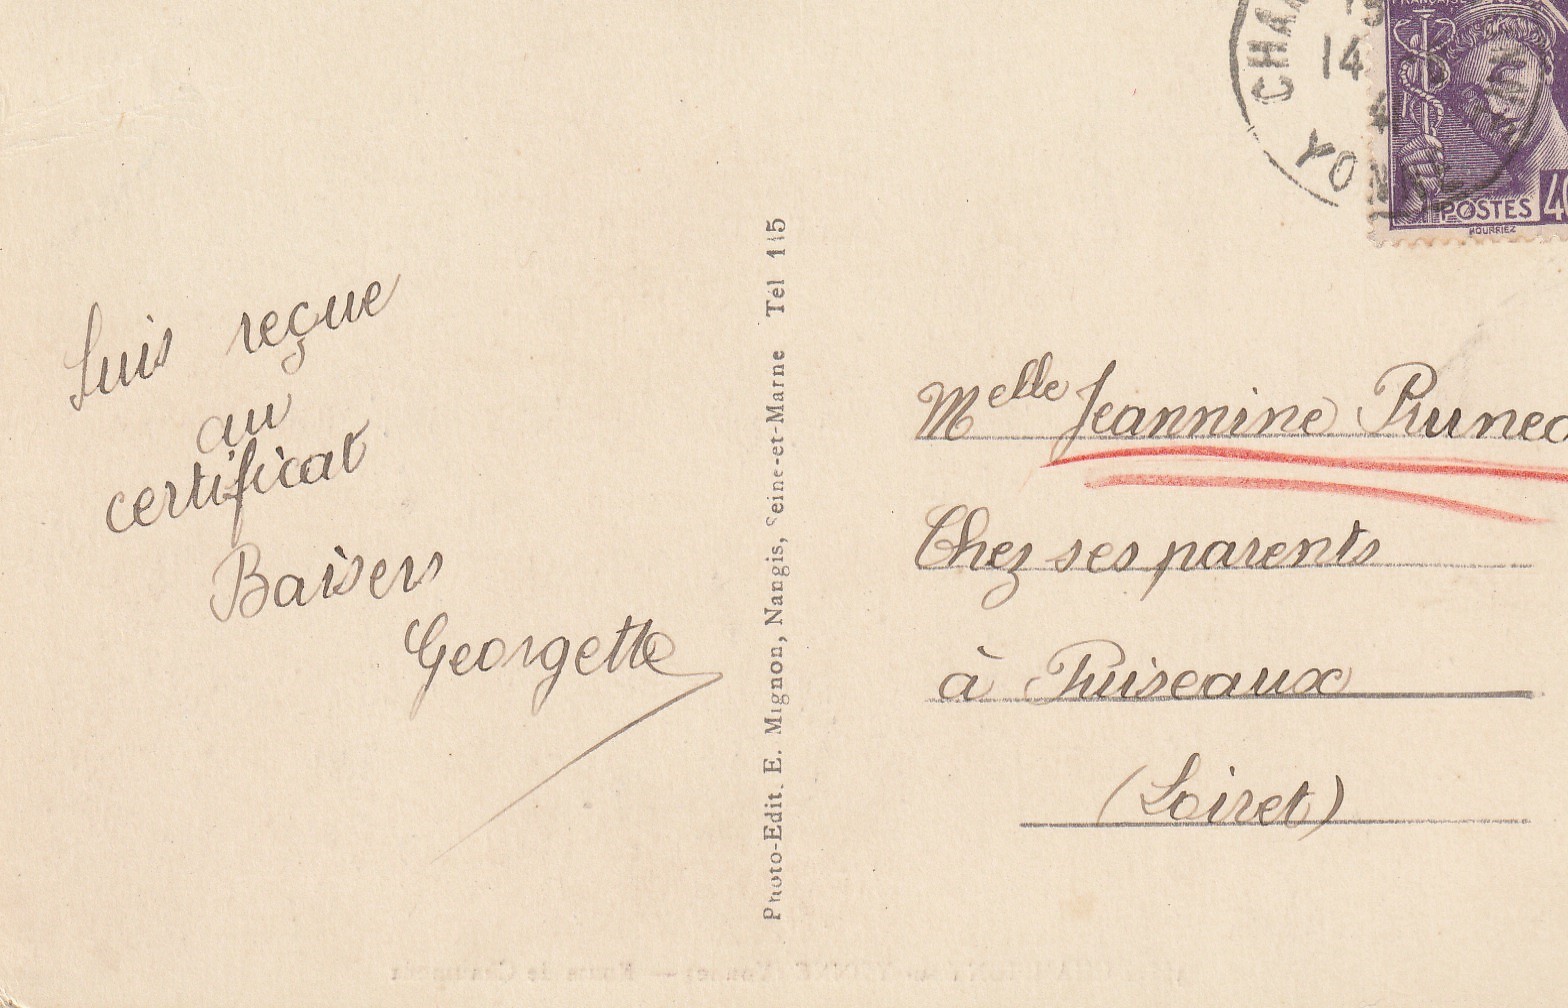 Suis reçue
au
certificat
Baisers
Georgette
Photo-Edit. E. Mignon, Nangis, Seine-et-Marne Tél 115
14
YONNE
POSTES 40
HOURRIEZ
Melle Jeannine
Chez ses parents
à Puiseaux
(Loiret)